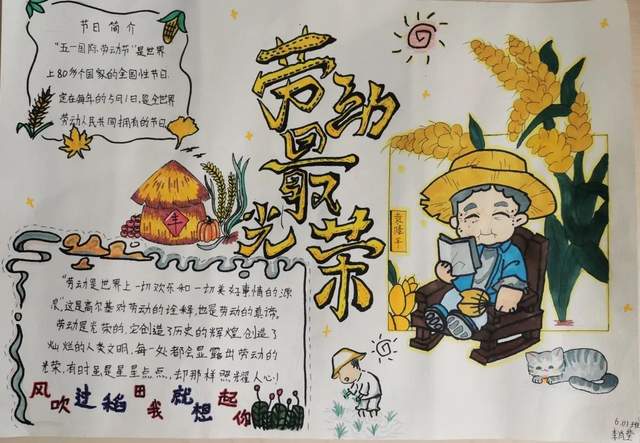 节日简介
"五一国际劳动节"是世界
上80多个国家的全国性节日.
定在每年的5月1日,是全世界
劳动人民共同拥有的节日.
劳动
最
光荣
丰
袁隆平
"劳动是世界上一切欢乐和一切美好事情的源
泉"这是高尔基对劳动的诠释,也是劳动的真谛.
劳动是光荣的,它创造了历史的辉煌,创造了
灿烂的人类文明,每一处都会显露出劳动的
光荣,有时虽是星星点点,却那样照耀人心!
风吹过稻田我就想起你